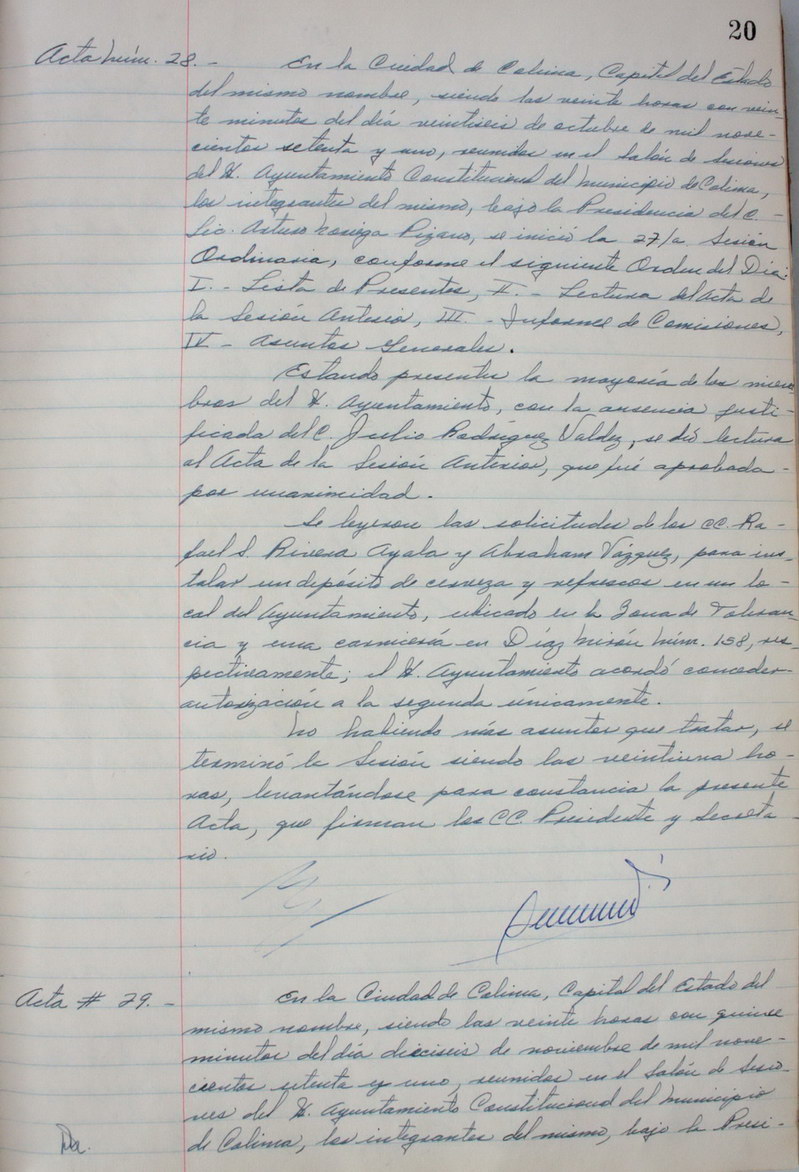 20
Acta núm. 28.- En la Ciudad de Colima, Capital del Estado
del mismo nombre, siendo las veinte horas con vein-
te minutos del día veintiseis de octubre de mil nove-
cientos setenta y uno, reunidos en el Salón de Sesiones
del H. Ayuntamiento Constitucional del Municipio de Colima,
los integrantes del mismo, bajo la Presidencia del C. -
Lic. Arturo Noriega Pizano, se inició la 27/a Sesión
Ordinaria, conforme el siguiente Orden del Día:
I.- Lista de Presentes, II.- Lectura del Acta de
la Sesión Anterior, III.- Informe de Comisiones,
IV- Asuntos Generales.
Estando presentes la mayoría de los miem-
bros del H. Ayuntamiento, con la ausencia justi-
ficada del C. Julio Rodríguez Valdez, se dió lectura
al Acta de la Sesión Anterior, que fué aprobada -
por unanimidad.
Se leyeron las solicitudes de los CC. Ra-
fael S. Rivera Ayala y Abraham Vázquez, para ins-
talar un depósito de cerveza y refrescos en un lo-
cal del Ayuntamiento, ubicado en la Zona de Toleran-
cia y una carnicería en Díaz Mirón Núm. 158, res-
pectivamente; el H. Ayuntamiento acordó conceder-
autorización a la segunda únicamente.
No habiendo más asuntos que tratar, se
terminó la Sesión siendo las veintiuna ho-
ras, levantándose para constancia la presente
Acta, que firman los CC. Presidente y Secreta-
rio.
Acta # 29.- En la Ciudad de Colima, Capital del Estado del
mismo nombre, siendo las veinte horas con quince
minutos del día dieciseis de noviembre de mil nove-
cientos setenta y uno, reunidos en el Salón de Sesio-
nes del H. Ayuntamiento Constitucional del Municipio
de Colima, los integrantes del mismo, bajo la Presi-